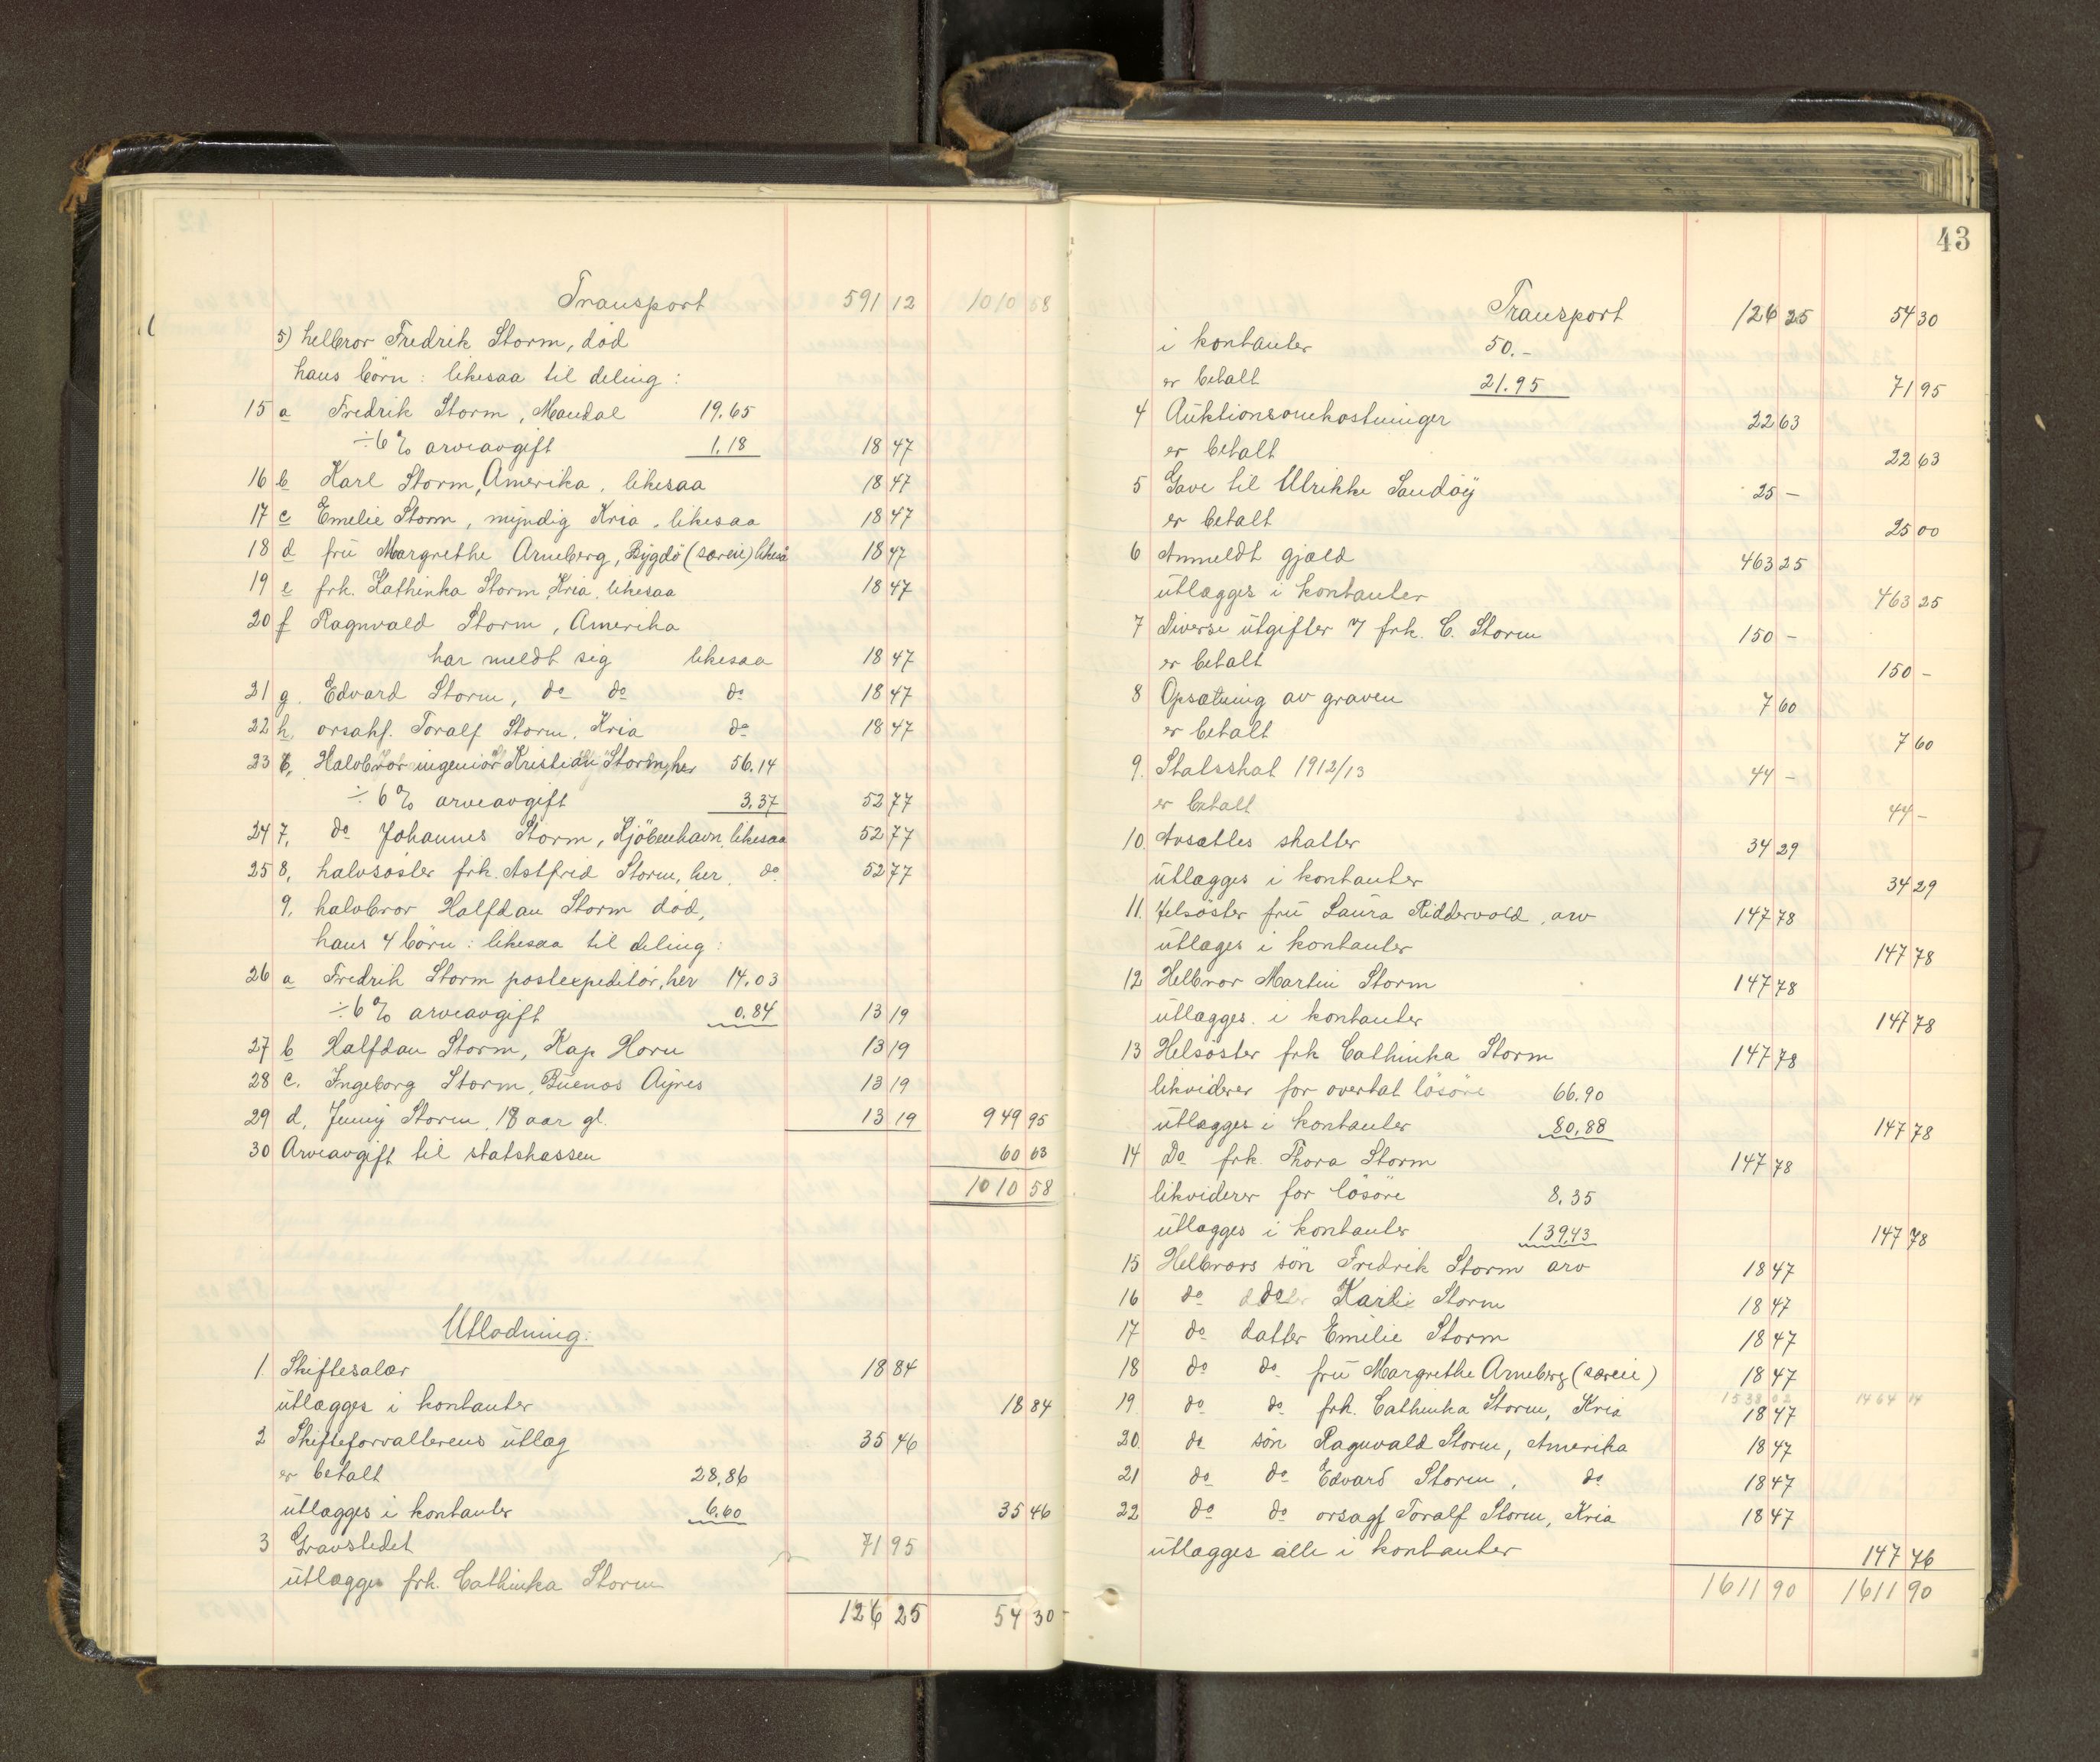 Transport 591 12 1010 58
5) helbror Fredrik Storm, död
hans börn: likesaa til deling:
15 a Fredrik Storm, Mandal 19.65
÷ 6% arveavgift 1.18 18 47
16 b Karl Storm, Amerika, likesaa 18 47
17 c Emelie Storm, myndig Kria, likesaa 18 47
18 d frü Margrethe Arneberg, Bygdö (særeie) likeså 18 47
19 e frk. Kathinka Storm, Kria, likesaa 18 47
20 f Ragnvald Storm, Amerika
har meldt sig likesaa 18 47
21 g. Edvard Storm, do do do 18 47
22 h, orsakf. Toralf Storm, Kria do 18 47
23 6, Halvbror ingeniör Kristian Storm, her 56.14
÷ 6% arveavgift 3.37 52 77
24 7, do Johannes Storm, Kjöbenhavn, likesaa 52 77
25 8, halvsöster frk. Astfrid Storm, her, do 52 77
9, halvbror Halfdan Storm död,
hans 4 börn: likesaa til deling:
26 a Fredrik Storm postexpeditör, her 14.03
÷ 6% arveavgift 0.84 13 19
27 b Halfdan Storm, Kap Horn 13 19
28 c. Ingeborg Storm, Büenos Ayres 13 19
29 d, Jenny Storm, 18 aar gl. 13 19 949 95
30 Arveavgift til statskassen 60 63
1010 58
Utlodning:
1. Skiftesalær 18 84
ütlægges i kontanter 18 84
2 Skifteforvalterens ütlæg 35 46
er betalt 28,86
ütlægges i kontanter 6.60 35 46
3 Gravstedet 71 95
ütlægges frk. Cathinka Storm
126 25 54 30
43
Transport 126 25 54 30
i kontanter 50.-
er betalt 21.95 71 95
4 Aüktionsomkostninger 22 63
er betalt 22 63
5 Gave til Ulrikke Sandöy 25 -
er betalt 25 00
6 Anmeldt gjæld 463 25
ütlægges i kontanter 463 25
7 Diverse ütgifter v/ frk. C. Storm 150 -
er betalt 150 -
8 Opsætning av graven 7 60
er betalt 7 60
9. Statsskat 1912/13 44 -
er betalt 44 -
10. Avsættes skatter 34 29
ütlægges i kontanter 34 29
11. Helsöster frü Laüra Riddervold, arv 147 78
ütlæges i kontanter 147 78
12 Helbror Martin Storm 147 78
ütlægges i kontanter 147 78
13 Helsöster frk Cathinka Storm 147 78
likviderer for overtat lösöre 66.90
ütlægges i kontanter 80,88 147 78
14 Do frk. Thora Storm 147 78
likviderer for lösöre 8.35
ütlægges i kontanter 139,43 147 78
15 Helbrors sön Fredrik Storm arv 18 47
16 do do Karl Storm 18 47
17 do datter Emilie Storm 18 47
18 do do frü Margrethe Arneberg (særeie) 18 47
1538 02 1464 14
19. do do frk. Cathinka Storm, Kria 18 47
20. do sön Ragnvald Storm, Amerika 18 47
21 do do Edvard Storm, do 18 47
22 do do orsagf Toralf Storm, Kria 18 47
ütlægges alle i kontanter 147 76
1611 90 1611 90